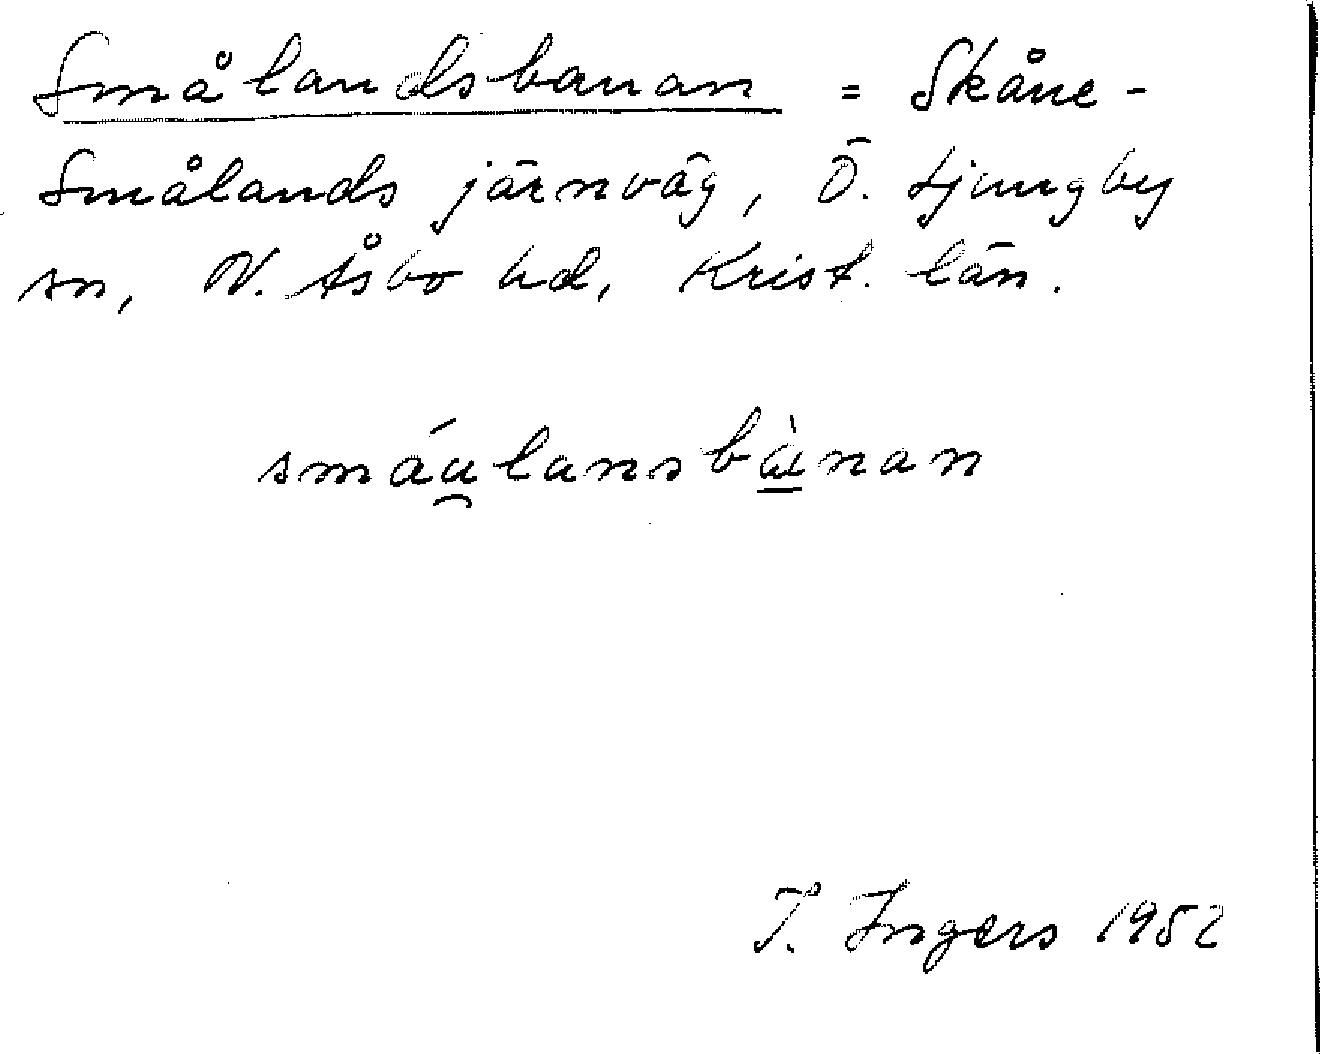 Smålandsbanan = Skåne-
Smålands järnväg, Ö. Ljungby
sn, N. Åsbo hd, Krist. län.
smáu̯lansbɑ̱̀nan
I. Ingers 1952